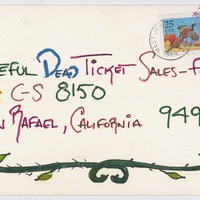 25
EFUL DEAD TICKET SALES-F
C-S 8150
N RAFAEL, CALIFORNIA 949